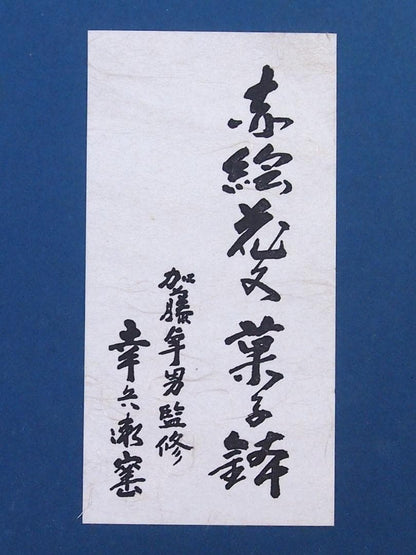 赤絵花文菓子鉢
加藤卓男監修
幸兵衛窯